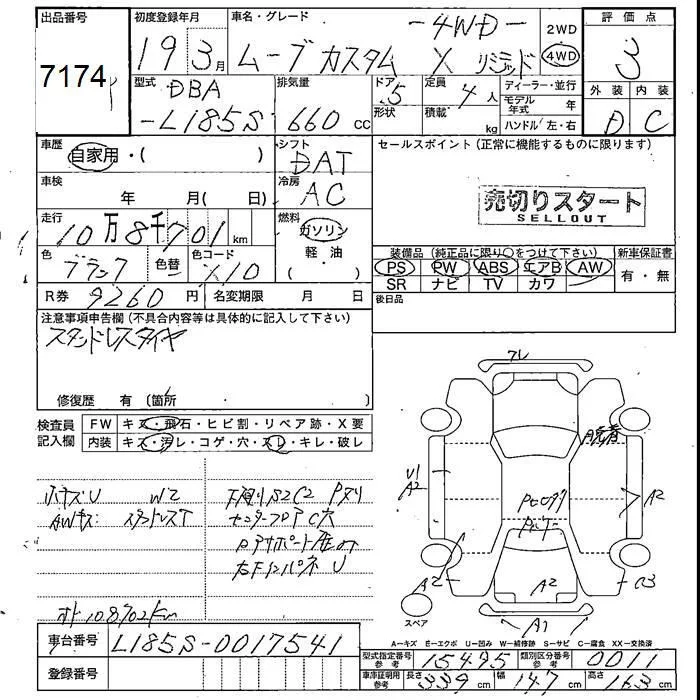 出品番号
7174
初度登録年月
19 3月
車名・グレード
-4WD-
ムーブカスタム X リミテッド
2WD
4WD
評価点
3
外装 内装
D C
型式
DBA
-L185S
排気量
660 cc
ドア 5
形状
定員 4人
積載 kg
ディーラー・並行
モデル年式 年
ハンドル 左・右
車歴
自家用・( )
シフト
DAT
セールスポイント (正常に機能するものに限ります)
車検
年 月( 日)
冷房
AC
売切りスタート
SELLOUT
走行
10万8千701km
燃料
ガソリン
軽・油
・( )
色
ブラック
色替
色コード
X10
装備品 (純正品に限り○をつけて下さい)
PS PW ABS エアB AW
SR ナビ TV カワ
新車保証書
有・無
R券 9260円
名変期限 月 日
後日品
注意事項申告欄(不具合内容等は具体的に記入して下さい)
スタッドレスタイヤ
修復歴 有 (箇所 )
検査員
記入欄
FW キズ・飛石・ヒビ割・リペア跡・X要
内装 キズ・汚レ・コゲ・穴・スレ・キレ・破レ
小キズU W2
AWキズ スタッドレスT
下廻りS2C2 Pヌリ
センターフロアC穴
右下インパネ U
108702Km
フレ
脱着
U1
A2
A2
A2
A2
C3
A1
スペア
A―キズ E―エクボ U―凹み W―補修跡 S―サビ C―腐食 XX―交換済
車台番号
L185S-0017541
登録番号
型式指定番号 参考
15495
類別区分番号 参考
0011
車庫証明用 参考
長さ 339cm
幅 147cm
高さ 163cm